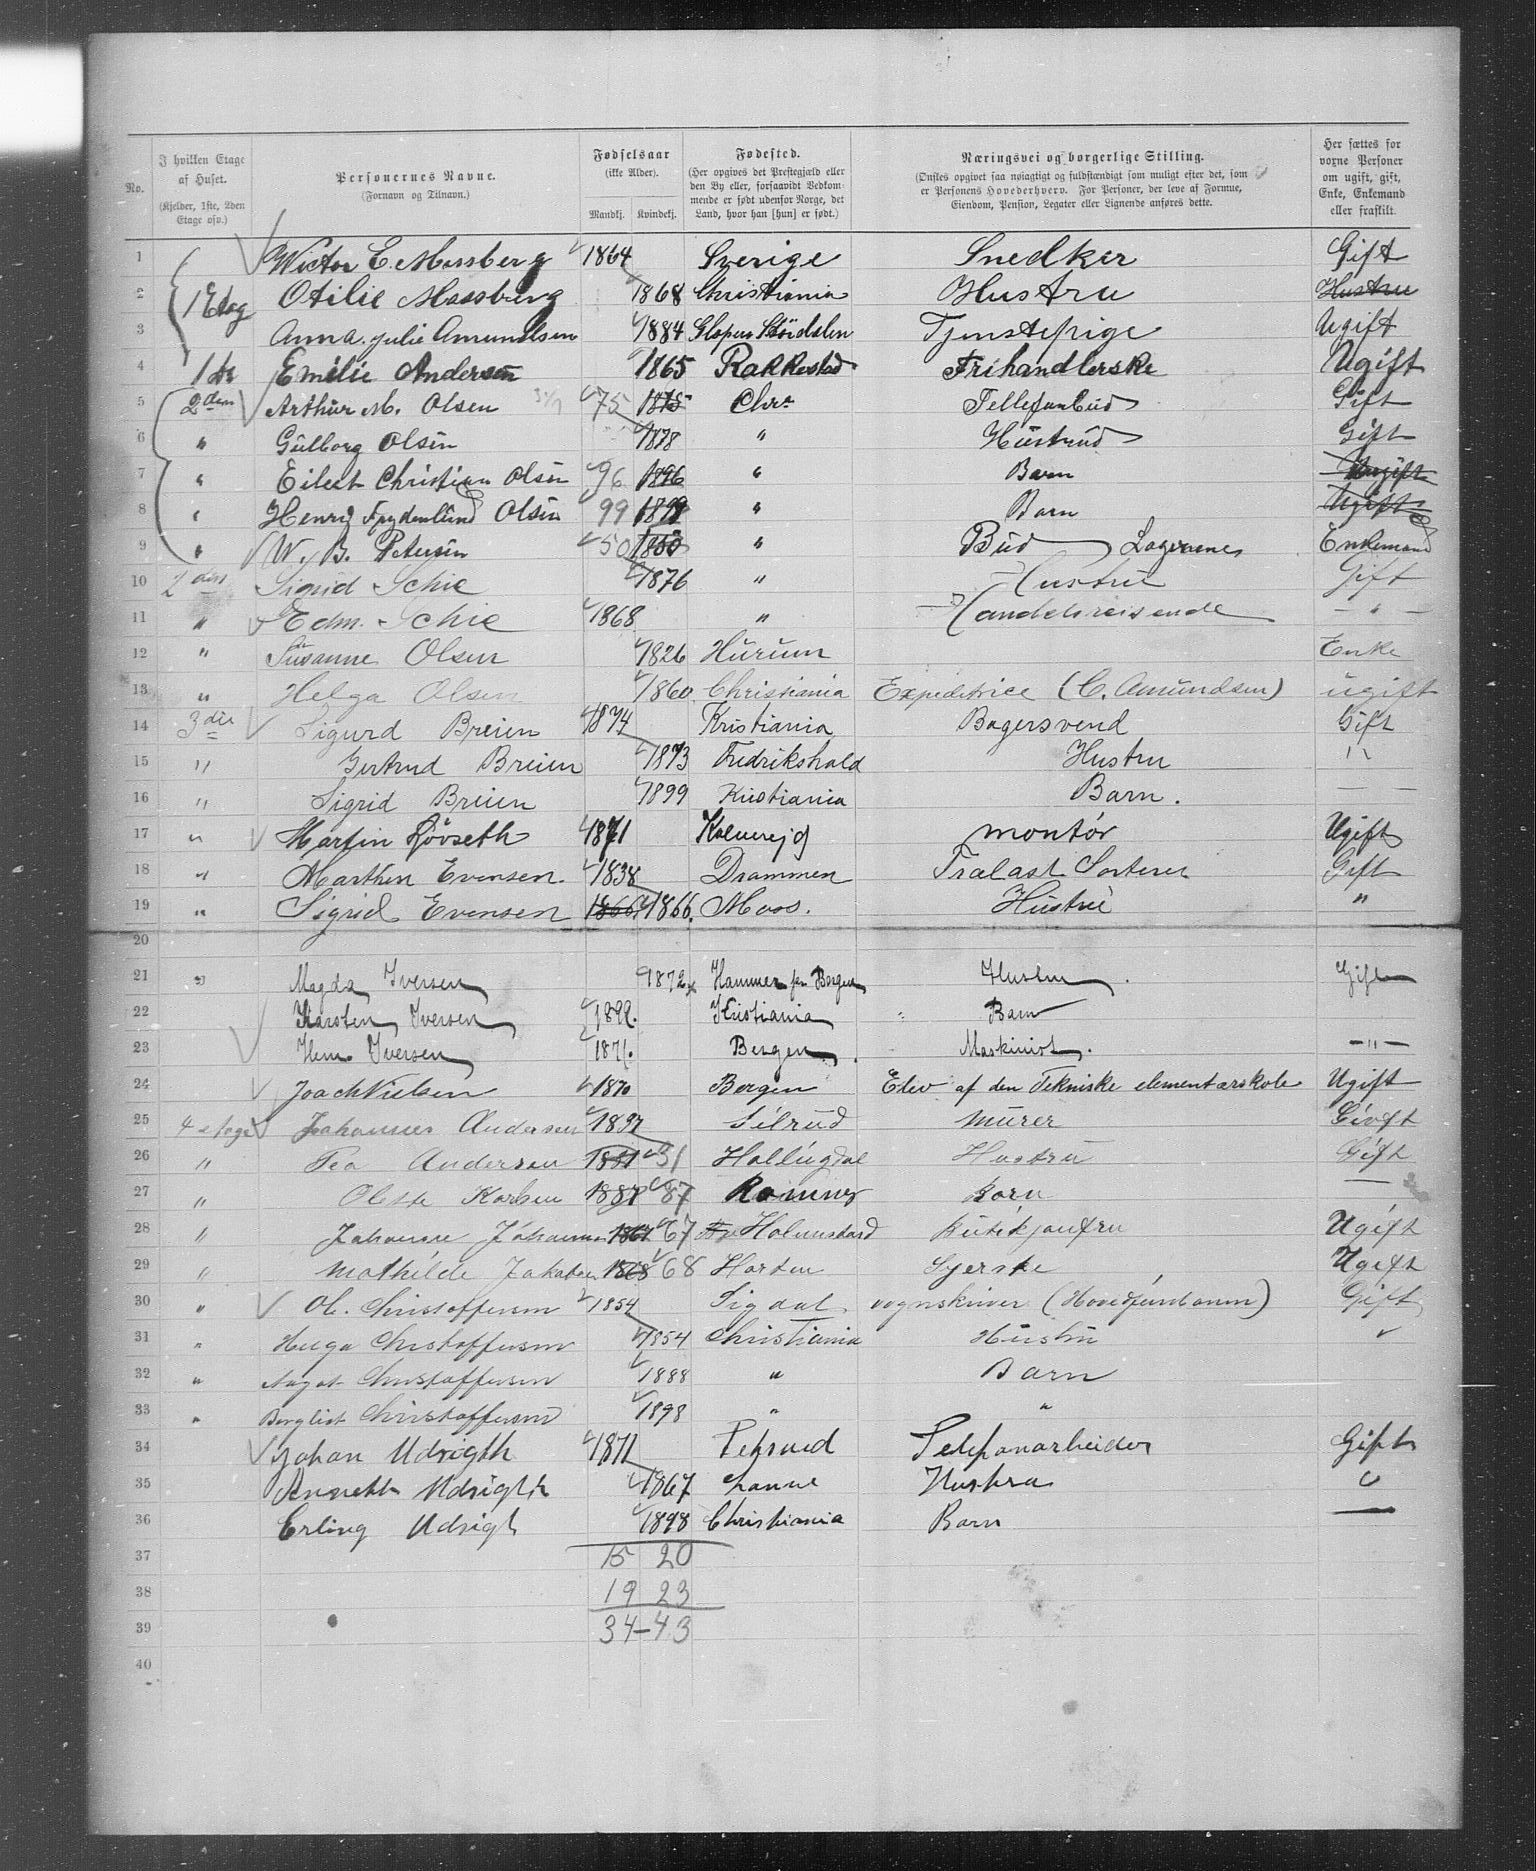 No. I hvilken Etage af Huset. (Kjelder, 1ste, 2den Etage osv.) Personernes Navne. (Fornavn og Tilnavn.) Fødselsaar (ikke Alder). Mandkj. Kvindekj. Fødested. (Her opgives det Prestegjæld eller den By eller, forsaavidt Vedkommende er født udenfor Norge, det Land, hvor han [hun] er født.) Næringsvei og borgerlige Stilling. (Ønskes opgivet saa nøiagtigt og fuldstændigt som muligt efter det, som er Personens Hovederhverv. For Personer, der leve af Formue, Eiendom, Pension, Legater eller Lignende anføres dette. Her sættes for voxne Personer om ugift, gift, Enke, Enkemand eller fraskilt.
1 Wictor E. Mossberg 1864 Sverige Snedker Gift
2 1 Etag Otilie Mossberg 1868 Christiania Hustru Hustru
3 Anna Julie Amundsen 1884 Tjenstepige Ugift
4 1ste Emilie Andersen 1865 Rakkestad Frihandlerske Ugift
5 2den Arthur M. Olsen 75 1875 Chra Tellefonbud Gift
6 " Gulborg Olsen 1878 " Hustrud Gift
7 " Eilert Christian Olsen 96 1896 " Barn Ungift
8 " Henrij Frydenlund Olsen 99 1899 " Barn Ugift
9 " W. B. Petersen 50 1850 " Bud Enkemand
10 2den Sigrid Schie 1876 " Hustru Gift
11 " Edm. Schie 1868 " Handelsreisende — " —
12 " Susanne Olsen 1826 Hurum Enke
13 " Helga Olsen 1860 Christiania Expeditrice (C. Amundsen) ugift
14 3die Sigurd Breien 1874 Kristiania Bagersvend Gift
15 " Gertrud Breien 1873 Fredrikshald Hustru "
16 " Sigrid Breien 1899 Kristiania Barn. —
17 " Martin Røvseth 1871 montør Ugift
18 " Marthin Evensen 1838 Drammen Trælast Sorterer Gift
19 " Sigrid Evensen 1866 1866. Moss. Hustru "
20
21 " Magda Iversen 1872 Hammer pr Bergen Hustru. Gift
22 Karsten Iversen 1899. Kristiania " Barn
23 Herm. Iversen 1871. Bergen. Maskinist. —"—
24 Joach Nielsen 1870 Bergen Elev af den Tekniske elementarskole Ugift
25 4 etage Johannes Andersen 1897 murer Givft
26 " Tea Andersen 1851 51 Hallingdal Hustru Gift
27 " Karlsen 1887 87 barn —
28 " 1867 67 Holmestrand Ugift
29 " Mathilde Jakobsen 1868 68 Horten Syerske Ugift
30 " Ol. Christoffersen 1854 Sigdal vognskriver (Hovedjernbanen) Gift
31 " Helga Christoffersen 1854 Christiania Hustru "
32 " Aagot Christoffersen 1888 " Barn
33 " Borgliot Christoffersen 1898 " "
34 Johan Udsigth 1871 Telefonarbeider Gift
35 Annette Udsigth 1867 Hustru "
36 Erling Udsigt 1898 Christiania Barn —
37 15 20
38 19 23
39 34-43
40